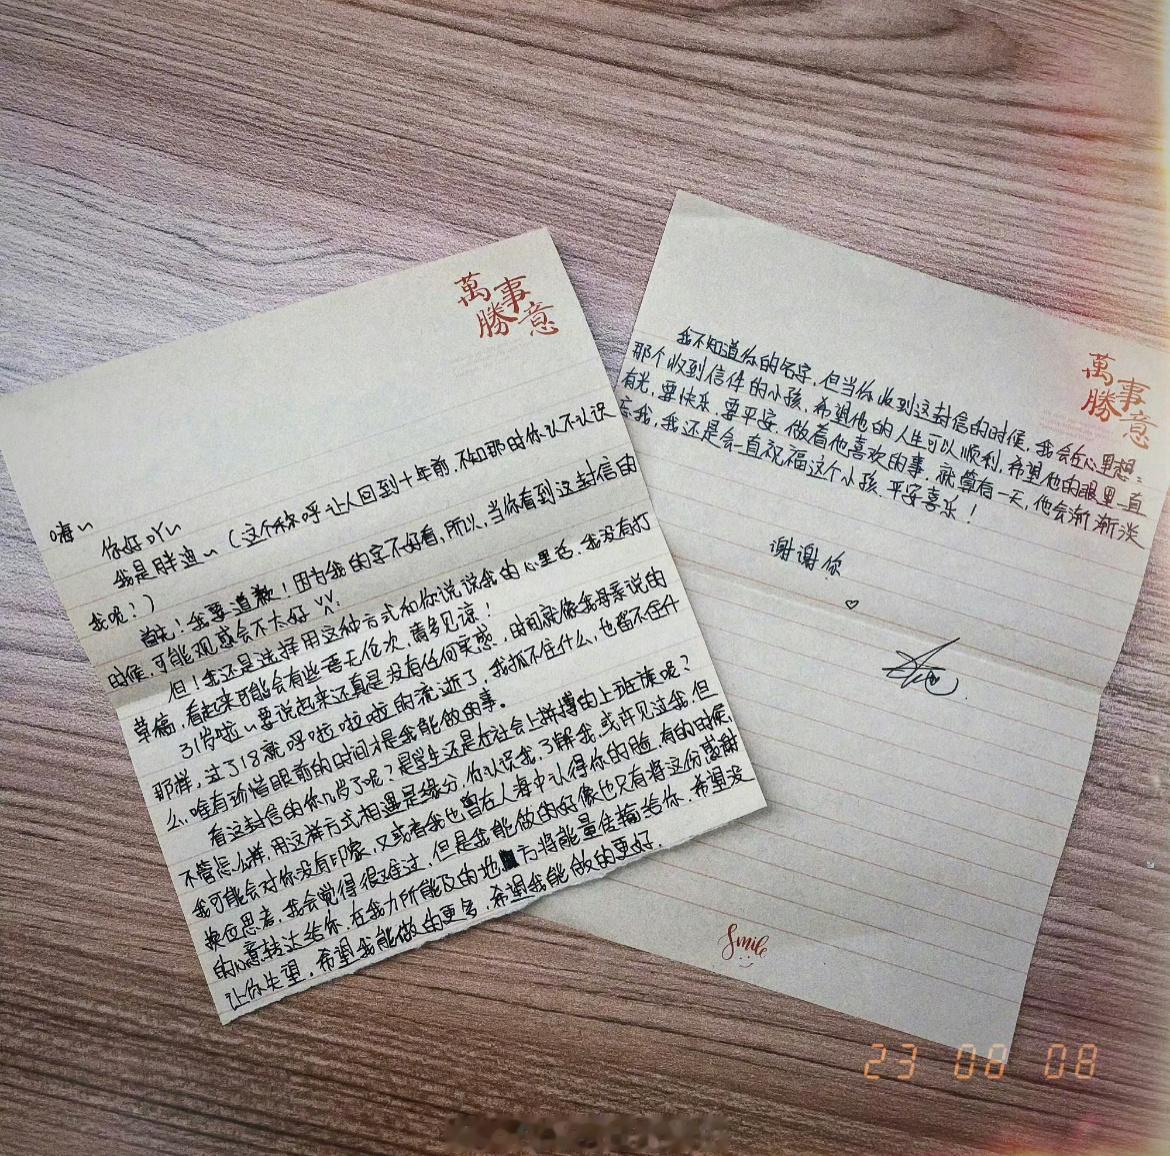 萬事
勝意
嗨~
你好吖~
我是胖迪~（这个称呼让人回到十年前，不知那时你认不认识
我呢！）
首先！我要道歉！因为我的字不好看，所以，当你看到这封信的
时候，可能观感会不太好
但！我还是选择用这种方式和你说说我的心里话，我没有打
草稿，看起来可能会有些语无伦次，请多见谅！
31岁啦~要说起来还真是没有任何实感，时间就像我母亲说的
那样，过了18就呼啦啦啦的流逝了，我抓不住什么，也留不住什
么，唯有珍惜眼前的时间才是我能做的事。
看这封信的你几岁了呢？是学生还是在社会上拼搏的上班族呢？
不管怎么样，用这样方式相遇是缘分，你认识我，了解我，或许见过我，但
我可能会对你没有印象，又或者我也曾在人海中认得你的脸，有的时候，
换位思考，我会觉得很难过，但是我能做的好像也只有将这份感谢
的心意转达给你，在我力所能及的地方将能量传输给你，希望没
让你失望，希望我能做的更多，希望我能做的更好。
萬事
勝意
我不知道你的名字，但当你收到这封信的时候，我会在心里想：
那个收到信件的小孩，希望他的人生可以顺利，希望他的眼里一直
有光，要快乐，要平安，做着他喜欢的事，就算有一天，他会渐渐淡
忘我，我还是会一直祝福这个小孩，平安喜乐！
谢谢你
Smile
23 08 08